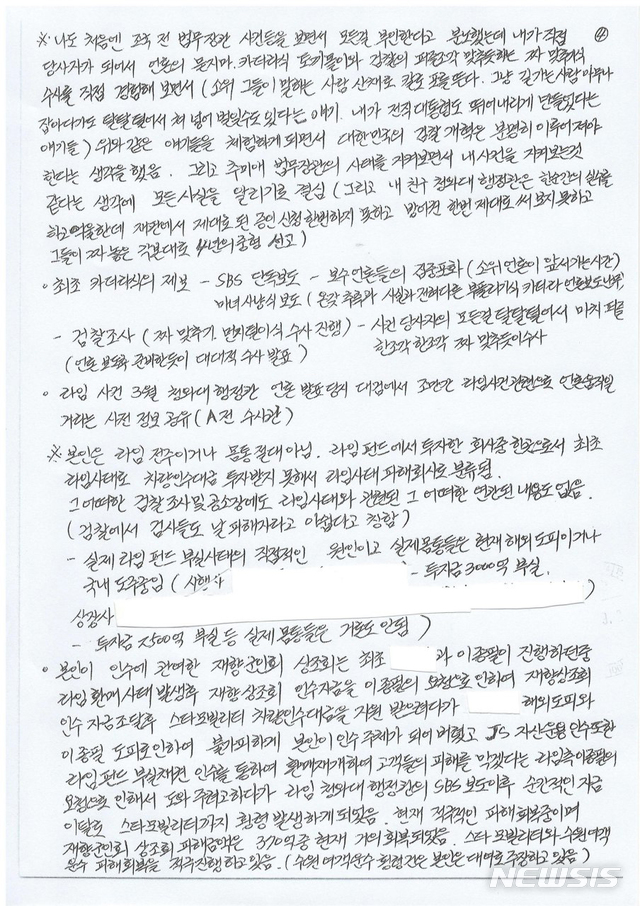 ④
※. 나도 처음엔 조국 전 법무장관 사건들을 보면서 모든걸 부인한다고 분노했는데 내가 직접
당사자가 되어서 언론의 묻지마, 카더라식 토끼몰이와 검찰의 퍼즐조각 맞추듯하는 짜 맞추기식
수사를 직접 경험해 보면서 (소위 그들이 말하는 사람 산채로 칼로 포를 뜬다. 그냥 길가는사람 아무나
잡아다가도 탈탈털어서 쳐 넣어 벌일수도 있다는 얘기. 내가 전직대통령도 뛰어내리게 만들었다는
얘기들) 위와 같은 얘기들을 체험하게 되면서 대한민국의 검찰개혁은 분명히 이루어져야
한다는 생각을 했음. 그리고 추미애 법무장관의 사태를 지켜보면서 내 사건을 지켜보는것
같다는 생각에 모든사실을 알리기로 결심 (그리고 내 친구 청와대 행정관은 한순간의 실수를
하고 억울한데 재판에서 제대로 된 증인 신청 한번하지 못하고 방어권 한번 제대로 써 보지 못하고
그들이 짜 놓은 각본대로 4년의 중형 선고)
◦ 최초 카더라식의 제보 - SBS 단독보도 - 보수언론들의 집중포화 (소위 언론이 앞서가는시간)
마녀 사냥식 보도 (온갖 추측과 사실과 전혀다른 부풀리기식 카더라 언론보도
- 검찰조사 (짜 맞추기. 먼지털이식 수사 진행) - 사건 당사자의 모든걸 탈탈털어서 마치 퍼즐
(언론 보도와 준비한듯이 대대적 수사 발표) 한조각 한조각 짜 맞추듯이수사
◦ 라임 사건 3월 청와대행정관 언론 발표당시 대검에서 조만간 라임사건관련으로 언론움직일
거라는 사전 정보 공유 (A전 수사관)
※ 본인은 라임 전주이거나 몸통 절대 아님. 라임 펀드에서 투자한 회사중 한곳으로서 최초
라임사태로 차량인수대금 투자받지 못해서 라임사태 피해회사로 분류됨.
그 어떠한 검찰 조사및 공소장에도 라임사태와 관련된 그 어떠한 연관된 내용도 없음.
(검찰에서 검사들도 날 피해자라고 아쉽다고 칭함)
- 실제 라임 펀드 부실사태의 직접적인 원인이고 실제몸통들은 현재 해외 도피이거나
국내 도주중임 (시행사 - 투자금 3000억 부실.
상장사 )
- 투자금 2500억 부실 등 실제 몸통들은 거론도 안됨)
◦ 본인이 인수에 관여한 재향군인회 상조회는 최초 과 이종필이 진행하던중
라임 환매사태 발생후 재향 상조회 인수자금을 이종필의 요청으로 인하여 재향상조회
인수 자금조달후 스타모빌리티 차량인수대금을 지원 받으려다가 해외도피와
이종필 도피로인하여 불가피하게 본인이 인수주체가 되어 버렸고 JS 자산운용 인수또한
라임펀드 부실채권 인수를 통하여 환매재개하여 고객들의 피해를 막겠다는 라임측이종필의
요청으로 인해서 도와 주려고하다가 라임 청와대 행정관의 SBS 보도이후 순간적인 자금
이탈로 스타모빌리티까지 횡령 발생하게 되었음. 현재 적극적인 피해회복중이며
재향군인회 상조회 피해금액은 370억중 현재 거의회복되었음. 스타모빌리티와 수원여객
운수 피해회복을 적극진행하고있음. (수원여객운수 횡령건은 본인은 대여로 주장하고 있음)
NEWSIS